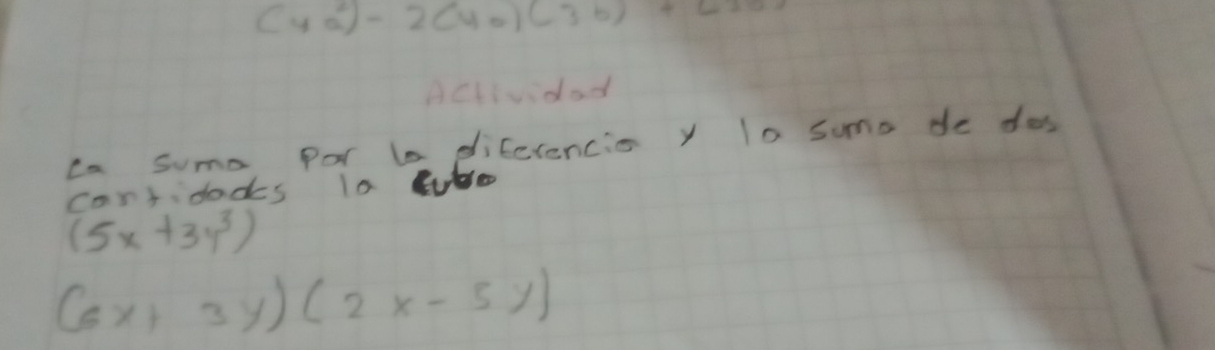 (4a²) - 2(4a)(3b) +
Actividad
La suma por la diferencia y la suma de dos
cantidades la cubo
(5x + 3y³)
(6x + 3y)(2x - 5y)